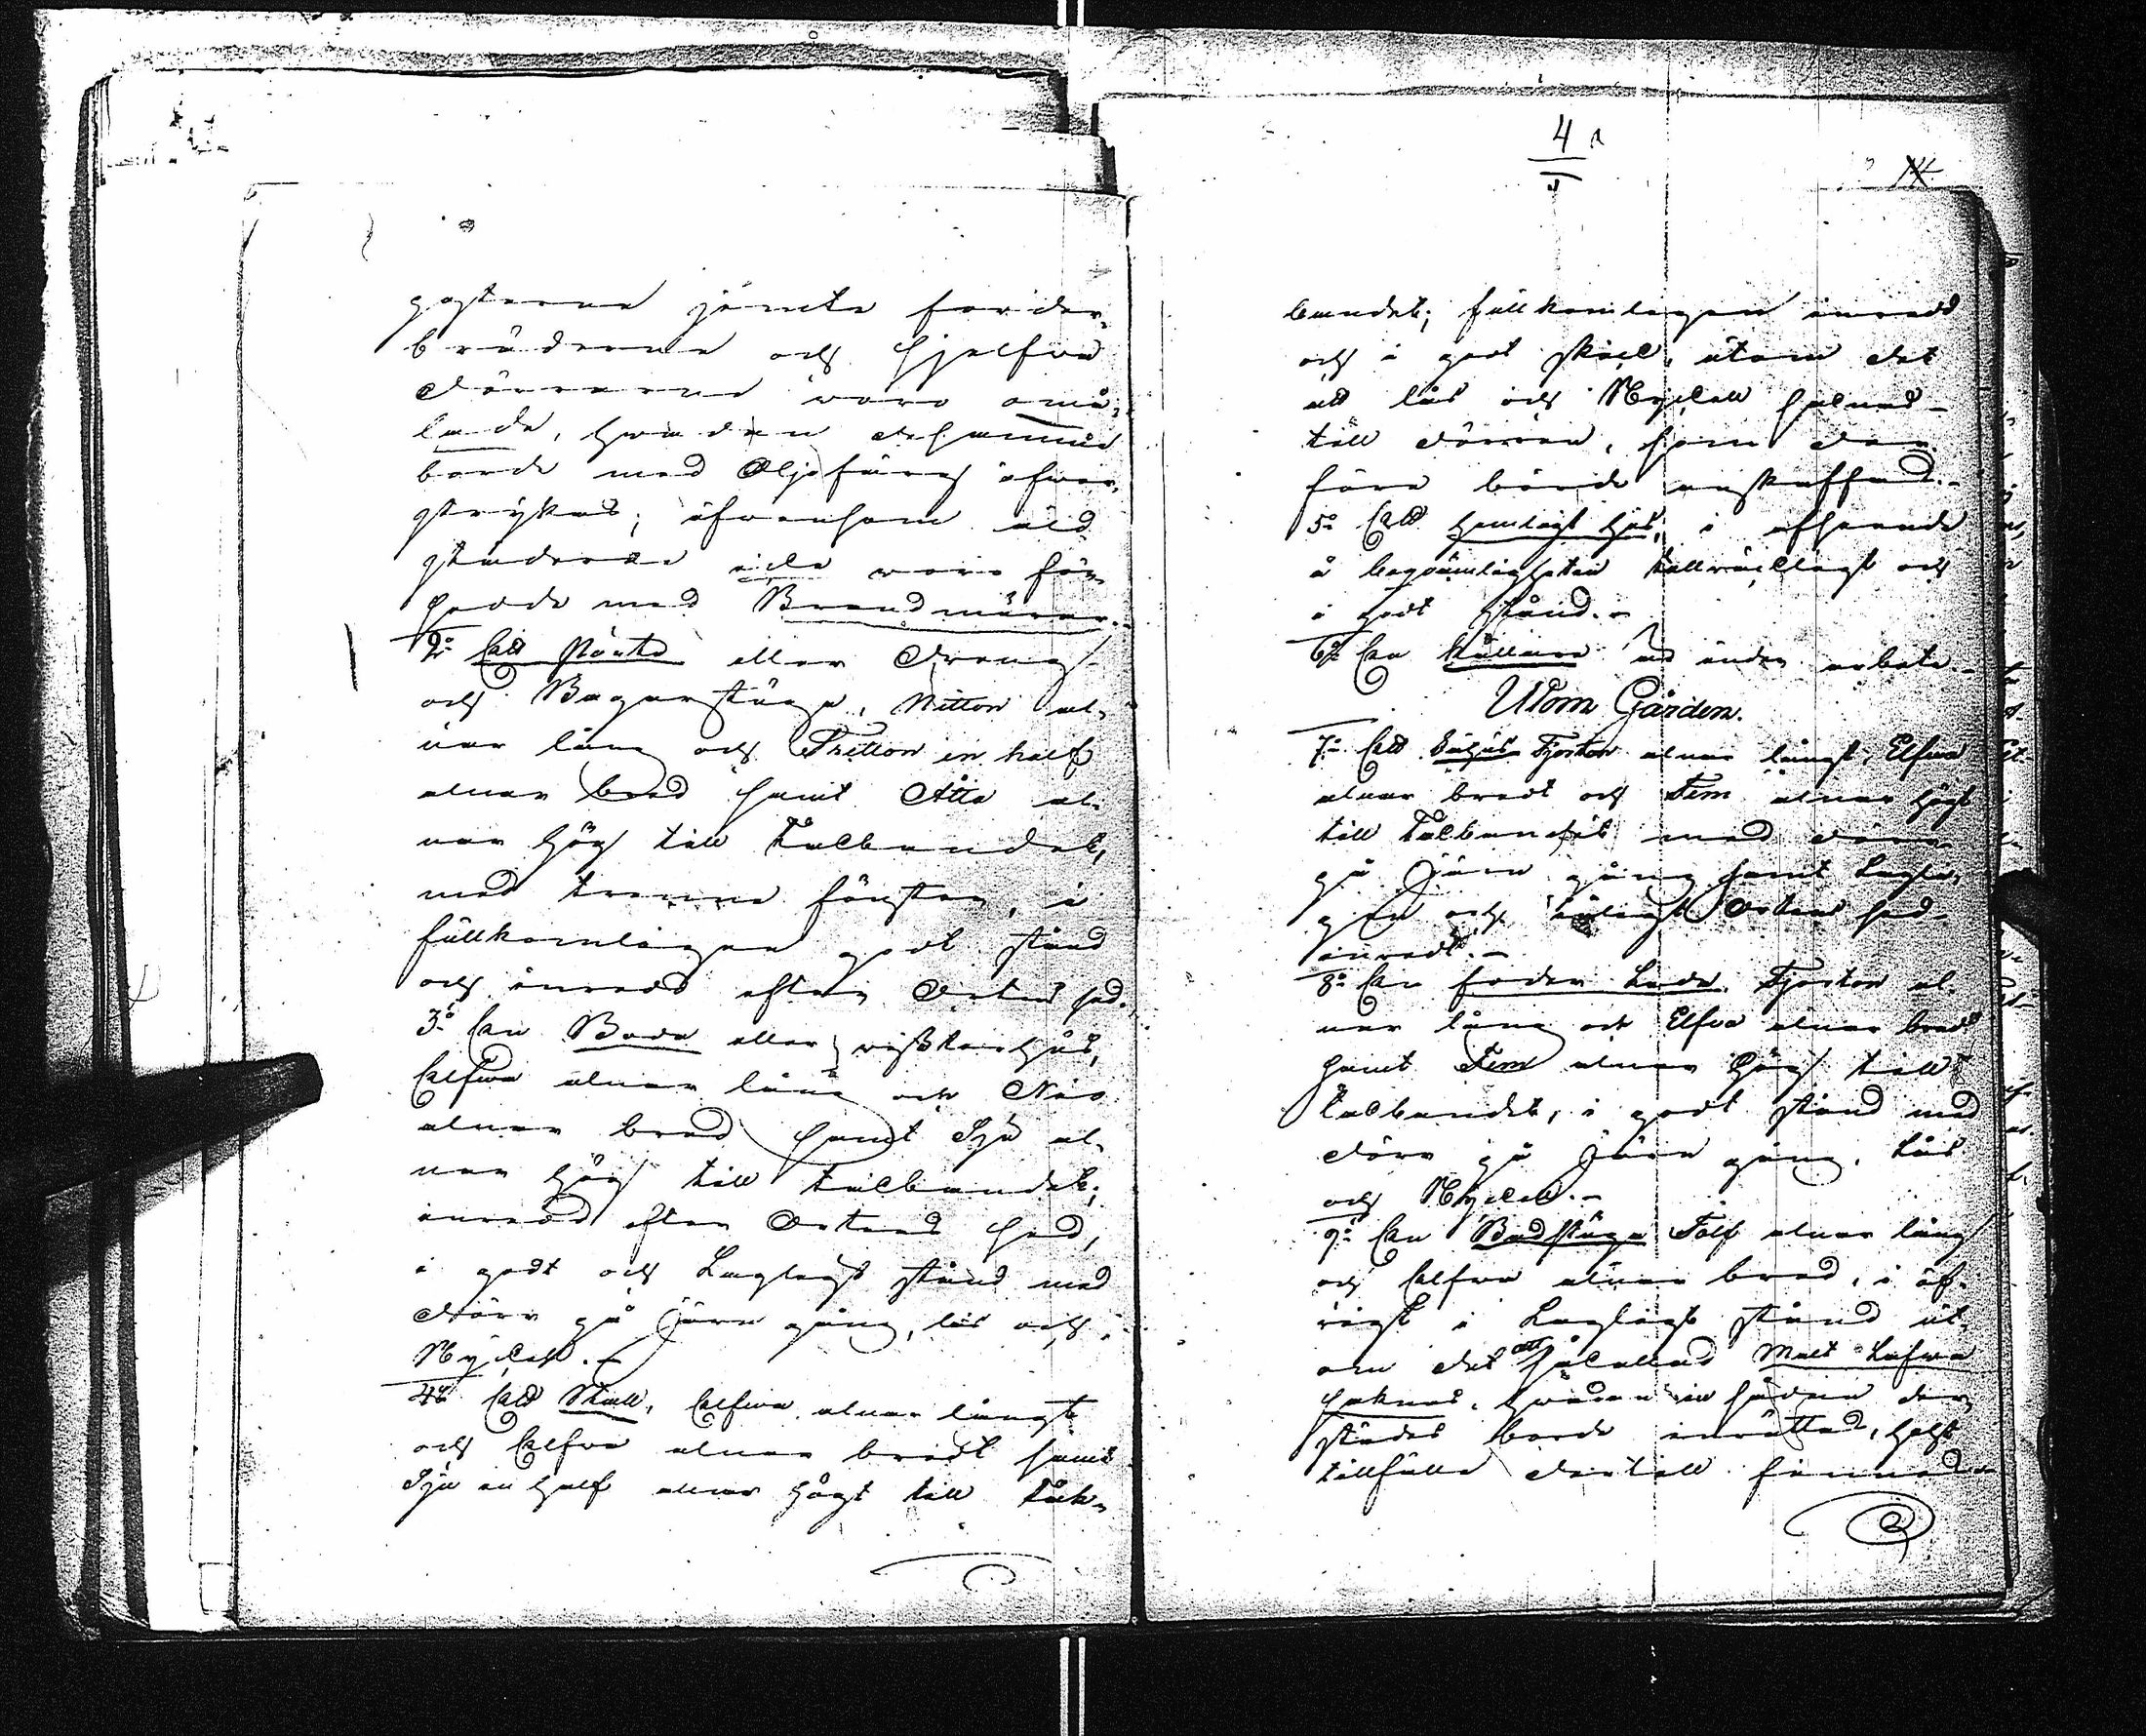 posterne jemte foder-
bräderne och sjelfva
dörrarne voro omå-
lade, hvadan desamma
borde med Oljefärg öfver-
strykas; äfvensom eld-
städerne icke voro för-
sedde med Brandmurar.
2o Ett Pörte eller Dreng-
och Bagarstuga, Nitton al-
nar lång och Tretton en half
alnar bred samt Åtta al-
nar hög till Takbandet,
med trenne fönster, i
fullkomligen godt stånd
och inredd efter Ortens sed.
3o En Bod eller visthus,
Elfva alnar lång och Nio
alnar bred samt Sju al-
nar hög till takbandet;
inredd efter Ortens sed,
i godt och Lagligt stånd med
dörr på Jern gång, lås och
Nyckel.-
4o Ett Stall, Elfva alnar långt
och Elfva alnar bredt samt
Sju en half alnar högt till tak-
4
bandet; fullkomligen inredd
och i godt skick, utom det
att lås och Nyckel saknas
till dörren, som der-
före börde anskaffas.-
5o Ett hemligt hus, i afseende
å beqvämligheten tillräckligt och
i godt stånd.-
6o En Källare är under arbete.-
Utom Gården.
7o Ett Fähus Fjorton alnar långt, Elfva
alnar bredt och Fem alnar högt
till Takbandet med dörr
på Jern gång samt Lagli-
gen och enligt Ortens sed
inredt.-
8o En foder Lada Fjorton al-
nar lång och Elfva alnar bred
samt Fem alnar hög till
takbandet, i godt stånd med
dörr på Jern gång, Lås
och Nyckel.-
9o En Badstuga Tolf alnar lång
och Elfva alnar bred, i öf-
rigt i Lagligt stånd ut-
om det att så kallad Malt Lafve
saknas, hvadan en sådan der-
städes borde inrättas, helst
tillfälle dertill finnes.-